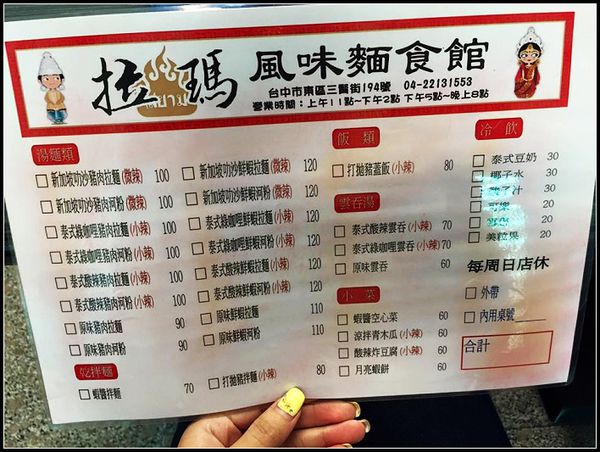 拉瑪 風味麵食館
台中市東區三賢街194號 04-22131553
營業時間：上午11點~下午2點 下午5點~晚上8點
湯麵類
新加坡叻沙豬肉拉麵(微辣) 100
新加坡叻沙豬肉河粉(微辣) 100
泰式綠咖哩豬肉拉麵(小辣) 100
泰式綠咖哩豬肉河粉(小辣) 100
泰式酸辣豬肉拉麵(小辣) 100
泰式酸辣豬肉河粉(小辣) 100
原味豬肉拉麵 90
原味豬肉河粉 90
新加坡叻沙鮮蝦拉麵(微辣) 120
新加坡叻沙鮮蝦河粉(微辣) 120
泰式綠咖哩鮮蝦拉麵(小辣) 120
泰式綠咖哩鮮蝦河粉(小辣) 120
泰式酸辣鮮蝦拉麵(小辣) 120
泰式酸辣鮮蝦河粉(小辣) 120
原味鮮蝦拉麵 110
原味鮮蝦河粉 110
乾拌麵
蝦醬拌麵 70
打拋豬拌麵(小辣) 80
飯類
打拋豬蓋飯(小辣) 80
雲吞湯
泰式酸辣雲吞(小辣) 70
泰式綠咖哩雲吞(小辣) 70
原味雲吞 60
小菜
蝦醬空心菜 60
涼拌青木瓜(小辣) 60
酸辣炸豆腐(小辣) 60
月亮蝦餅 60
冷飲
泰式豆奶 30
椰子水 30
汁 30
可樂 20
20
美粒果 20
每周日店休
外帶
內用桌號
合計